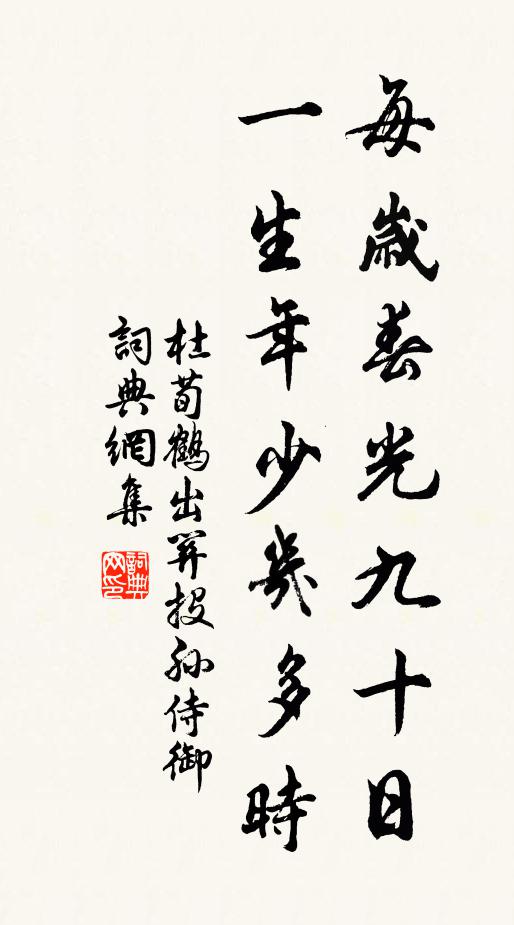 每歲春光九十日
一生年少幾多時
杜荀鶴出關投孫侍御
詞典網集
詞典網印